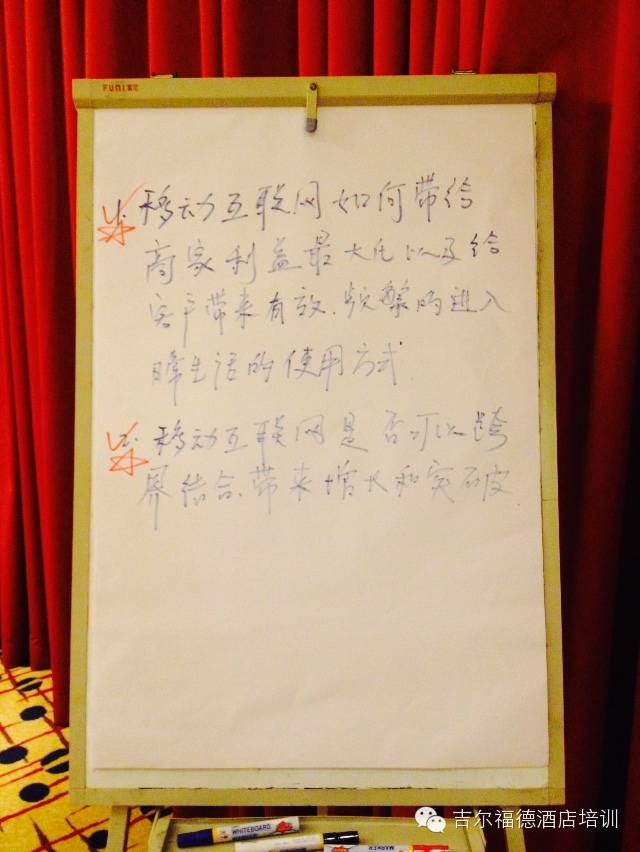 FUNI富尼
1. 移动互联网如何带给
商家利益最大化以及给
客户带来有效.频繁的进入
日常生活的使用方式
2. 移动互联网是否可以跨
界结合.带来增长和突破
WHITEBOARD
MARKER
MARKER
吉尔福德酒店培训